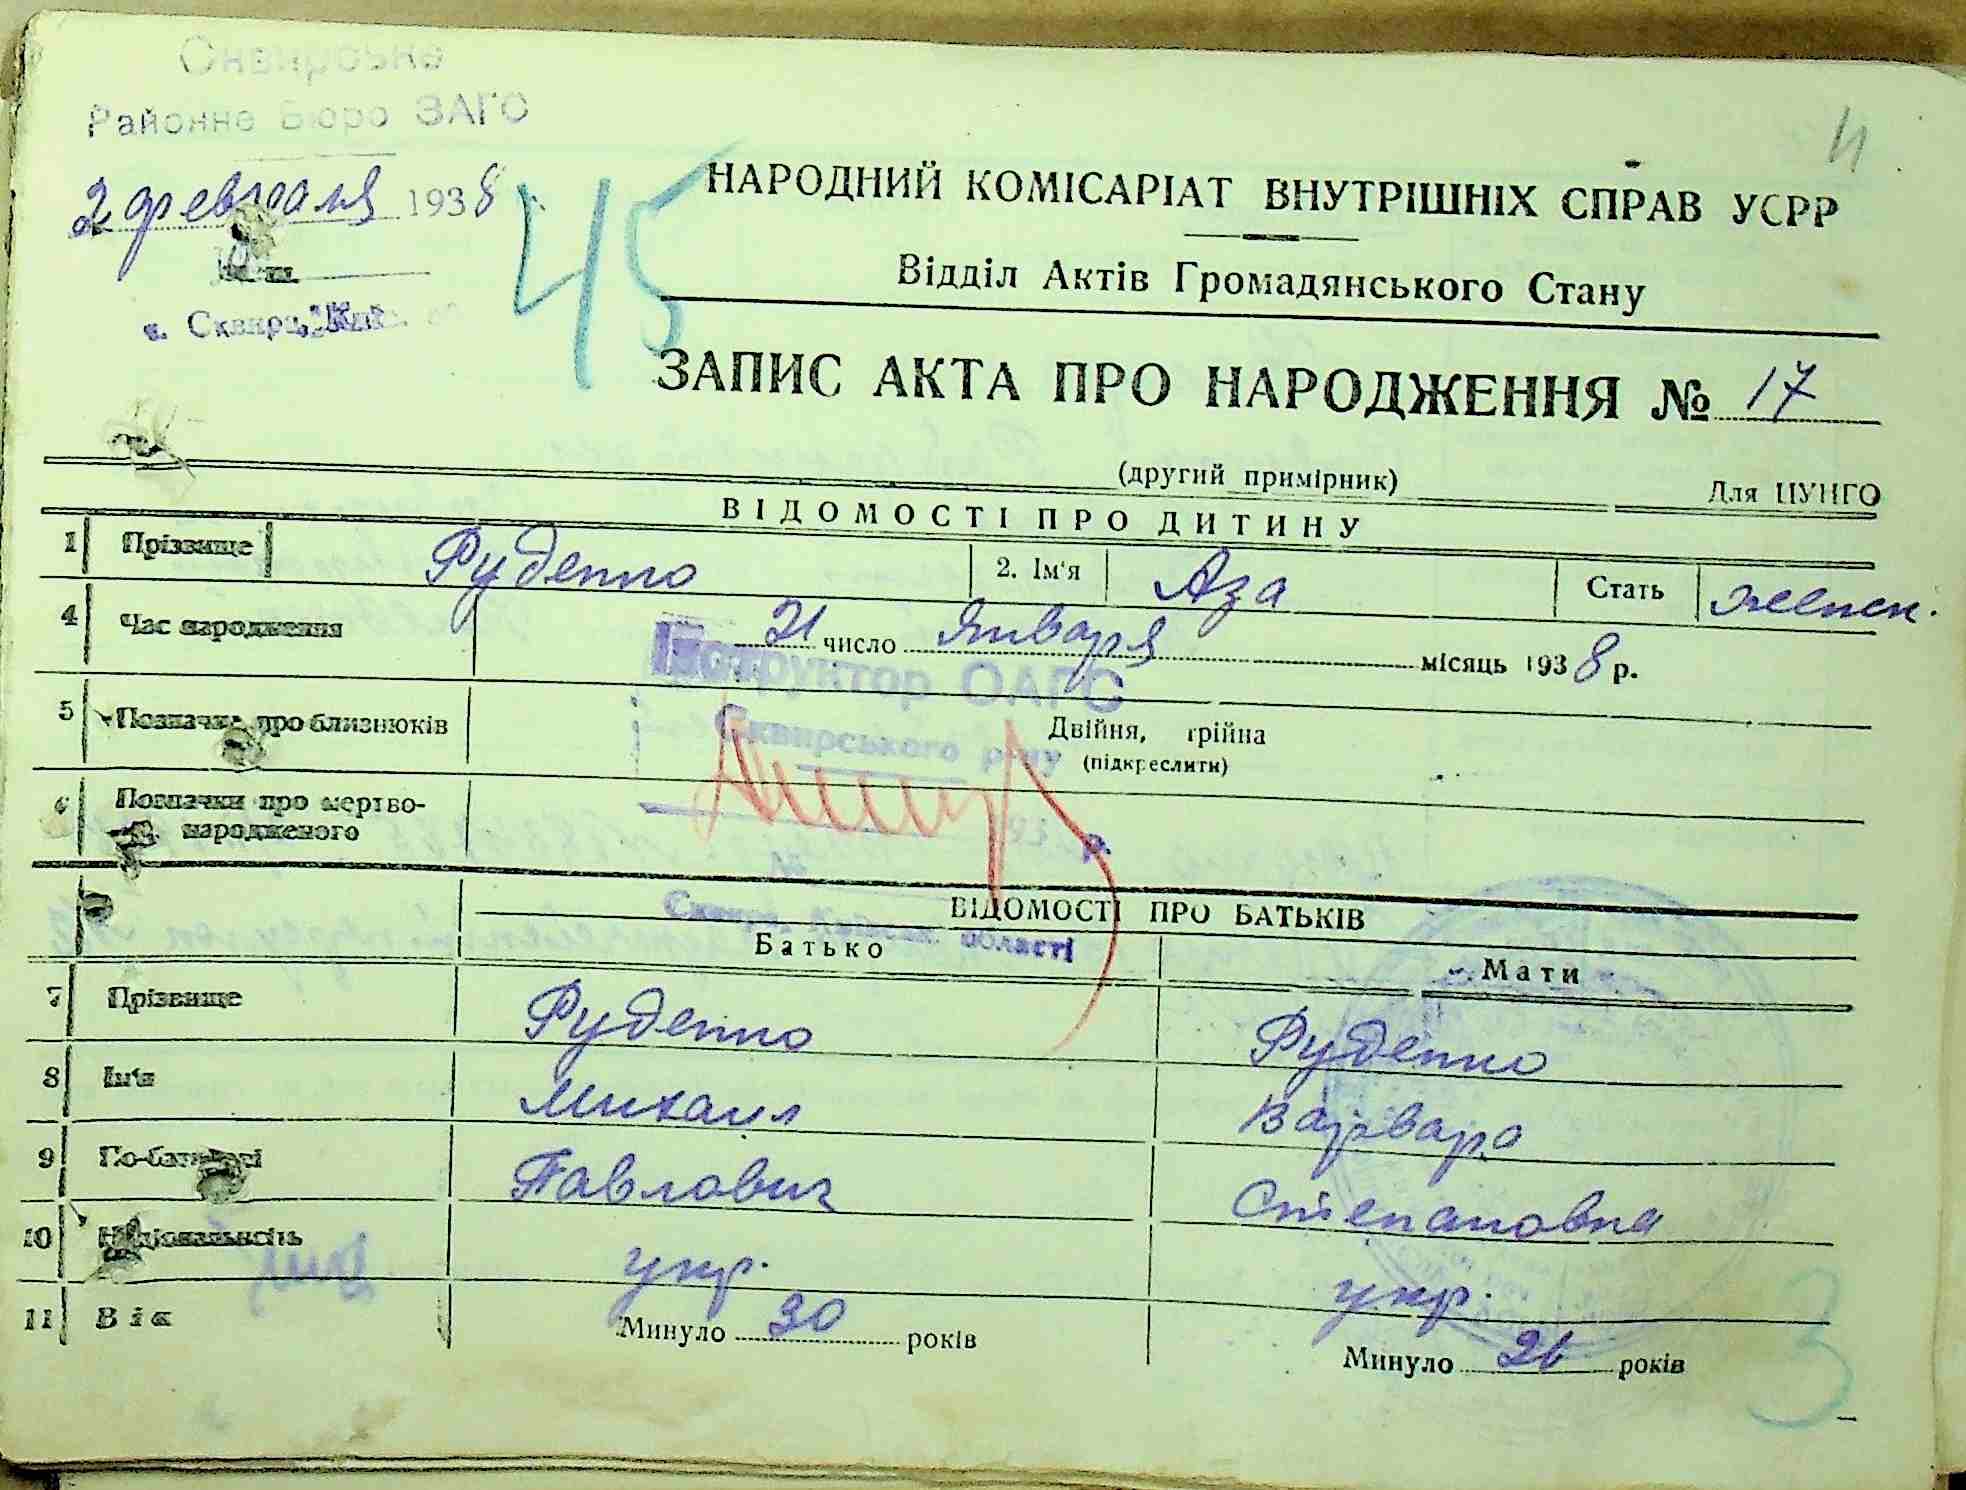 Сквирське
Районне Бюро ЗАГС
2 февраля 1938
м. Сквира, Київ.
45
НАРОДНИЙ КОМІСАРІАТ ВНУТРІШНІХ СПРАВ УСРР
Відділ Актів Громадянського Стану
ЗАПИС АКТА ПРО НАРОДЖЕННЯ № 17
(другий примірник) Для ЦУНГО
ВІДОМОСТІ ПРО ДИТИНУ
1 Прізвище Руденко 2. Ім'я Аза Стать женск.
4 Час народження 21 число Января місяць 1938 р.
Інструктор ОАГС
5 Позначка про близнюків Двійня, трійна
Сквирського р-ну (підкреслити)
6 Позначки про мертво-
народженого
193 р.
№
ВІДОМОСТІ ПРО БАТЬКІВ
Сквира, Київськ. області
Батько Мати
7 Прізвище Руденко Руденко
8 Ім'я Михаил Варвара
9 По-батькові Павлович Степановна
10 Національність укр. укр.
11 Вік Минуло 30 років Минуло 26 років
3